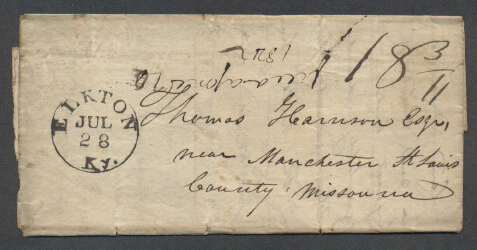 18 3/11
1842
ELKTON
JUL
28
Ky.
Thomas Harrison Esqr,
near Manchester St Louis
County Missouria